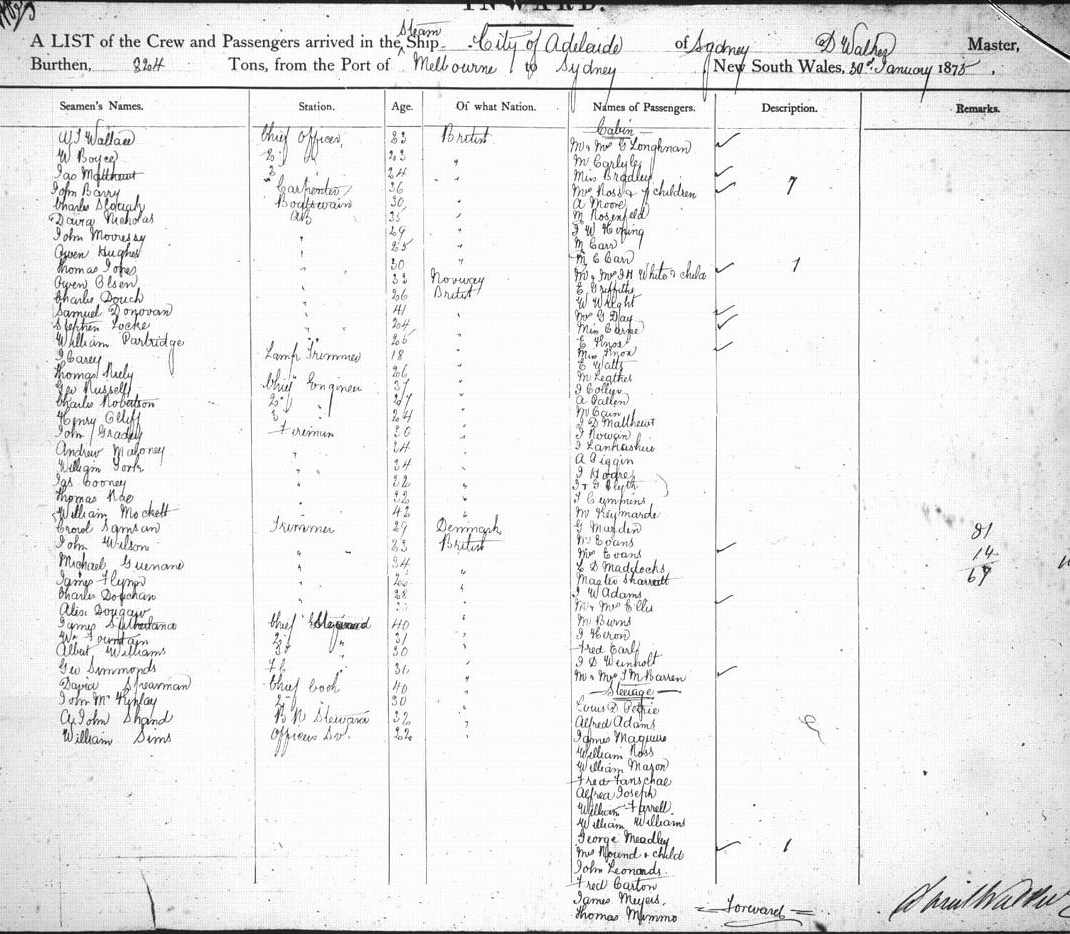 INWARD.
A LIST of the Crew and Passengers arrived in the Steam Ship City of Adelaide of Sydney D Walker Master,
Burthen, 824 Tons, from the Port of Melbourne to Sydney New South Wales, 30th January 1875.
Seamen's Names. Station. Age. Of what Nation. Names of Passengers. Description. Remarks.
Cabin
W J Wallace Chief Officer 33 British Mr & Mrs C Longhman
W Boyce 2d " 23 " Mr Carlyle
Jas Matthews 3 " 24 " Miss Bradley
John Barry Carpenter 36 " Mrs Ross & 7 children 7
Charles Boatswain 30 " A Moore
David Nicholas AB 35 " M Rosenfeld
John Movressy " 29 " J W
Owen Hughes " 25 " M Carr
Thomas Jones " 30 " M C Carr
Owen Olsen " 32 Norway Mr & Mrs J H White & child 1
Charles Douch " 26 British E Griffiths
Samuel Donovan " 41 " W Wright
Stephen Locke " 24 " Mrs G Day
William Partridge " 26 " Miss Carne
J Carey Lamp Trimmer 18 " C Knox
Thomas Riely 26 " Miss Knox
Geo Russell Chief Engineer 37 " E Watts
Charles Robertson 2d " 27 " M Leathes
Henry Cliff 3 " 24 " J Collyer
John Grady Firemen 30 " A Patten
Andrew Maloney " 24 " M Cain
William York " 34 " J D Matthews
Jas Cooney " 32 " J Rowan
Thomas Rae " 32 " J Lankashire
William Mockett " 42 " A Giggin
Carol Samsan Trimmer 29 Denmark J
John Wilson " 23 British J & G Blyth
Michael Guenane " 34 " T Cummins
James Flynn " 26 " Mr
Charles Douchan " 28 " G Marden
Alex Dougaw " " Mr Evans
James Sutherland Chief Steward 40 " Mrs Evans
Wm Fountain 2d " 31 " L D Maddocks
Albert Williams 3d " 30 " Master Sharratt
Geo Simmonds 31 " J W Adams
David Spearman Chief Cook 40 " Mr & Mrs Ellis
John McKinlay 2d 30 " M Burns
John Shand Steward 32 " J Heron
William Sims Officers Do. 22 " Fred Earl
J D Weinholt
Mr & Mrs J M Barren
Steerage
Louis D Petrie
Alfred Adams
James Maguire
William Ross
William Mason
Fred Fanschae
Alfred Joseph
William Farrell
William Williams
George Meadley
Mrs Round & child 1
John Leonards
Fred Carton
James Meyers
Thomas Mimmo
Forward
81
14
67
David Walker